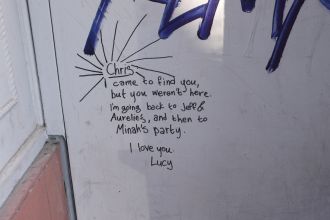 Chris
I came to find you,
but you weren't here.
I'm going back to Jeff &
Aurelie's, and then to
Minah's party.
I love you.
Lucy